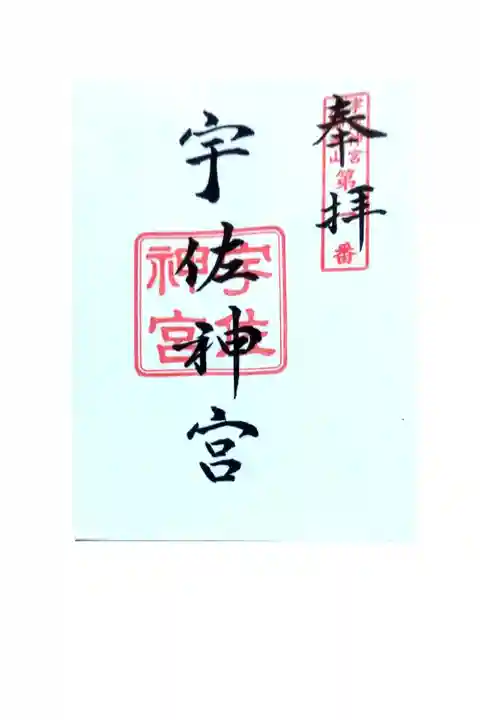 奉拝
第
番
宇佐神宮
宇佐
神宮